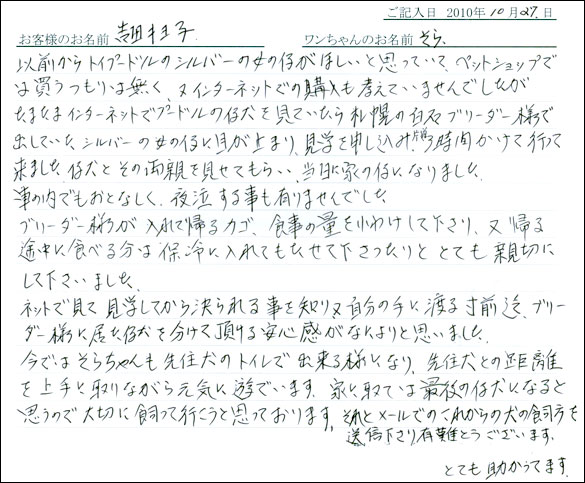 ご記入日 2010年10月27日
お客様のお名前 子 ワンちゃんのお名前 そら
以前からトイプードルのシルバーの女の仔がほしいと思っていて、ペットショップで
は買うつもりは無く、又インターネットでの購入も考えていませんでしたが
たまたまインターネットでプードルの仔犬を見ていたら札幌の白石ブリーダー様で
出していたシルバーの女の仔に目が止まり、見学を申し込み 時間かけて行って
来ました。仔犬とその両親を見せてもらい、当日に家の仔になりました。
車の内でもおとなしく、夜泣する事も有りませんでした
ブリーダー様が入れて帰るカゴ、食事の量を小わけして下さり、又帰る
途中に食べる分は保冷に入れてもたせて下さったりと とても親切に
して下さいました。
ネットで見て見学してから決られる事を知り又自分の手に渡る寸前迄、ブリー
ダー様に居た仔犬を分けて頂ける安心感がなによりと思いました。
今ではそらちゃんも先住犬のトイレで出来る様になり、先住犬との距離
を上手に取りながら元気に遊でいます。家に取ては最後の仔犬になると
思うので大切に飼って行こうと思っております。それとメールでのこれからの犬の飼方を
送信下さり有難とうございます。
とても助かってます。